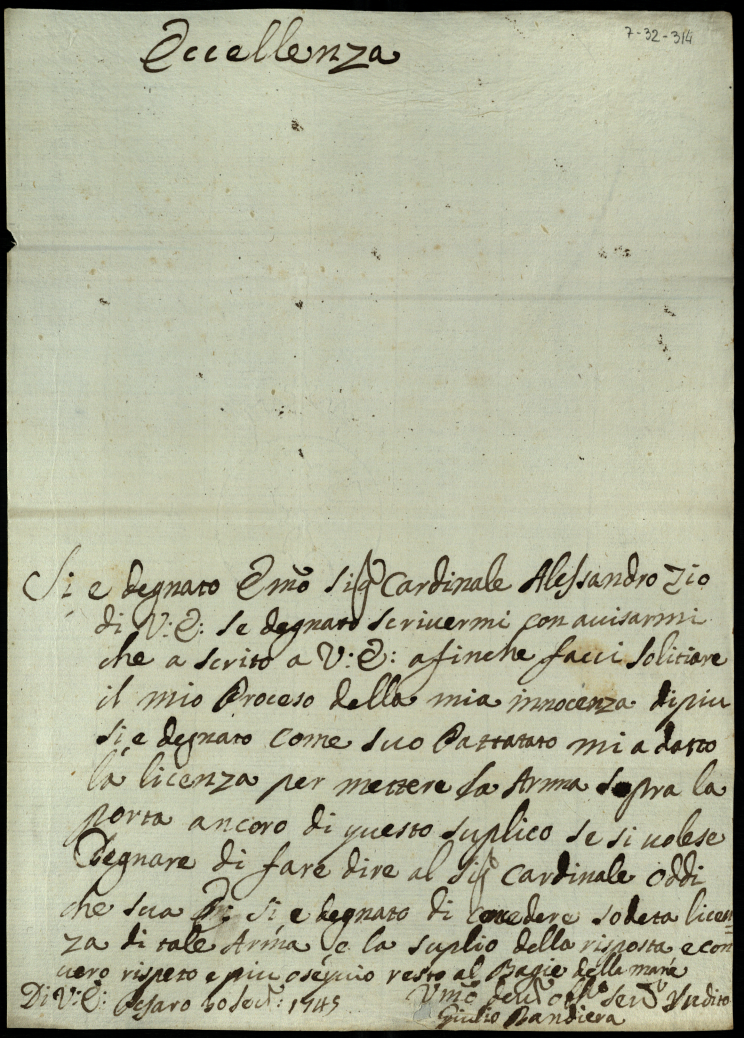 7-32-314
Eccellenza
Si e degnato Emõ Sigr Cardinale Alessandro Zio
di V: E: se degnato scrivermi con avisarmi
che a scrito a V: E: afinche facci solitiare
il mio Proceso della mia innocenza di piu
si e degnato come suo Pattatato mi a datto
la licenza per mettere la Arma sopra la
porta ancoro di questo suplico se si volese
Degnare di fare dire al Sigr Cardinale Oddi
che sua E: si e degnato di concedere sodeta licen=
za di tale Arma e la suplio della risposta e con
vero rispeto e piu osequio resto al Bagie della mane
Di V: E: Pesaro 1745
Vmõ Sudito
Giulio Bandiera